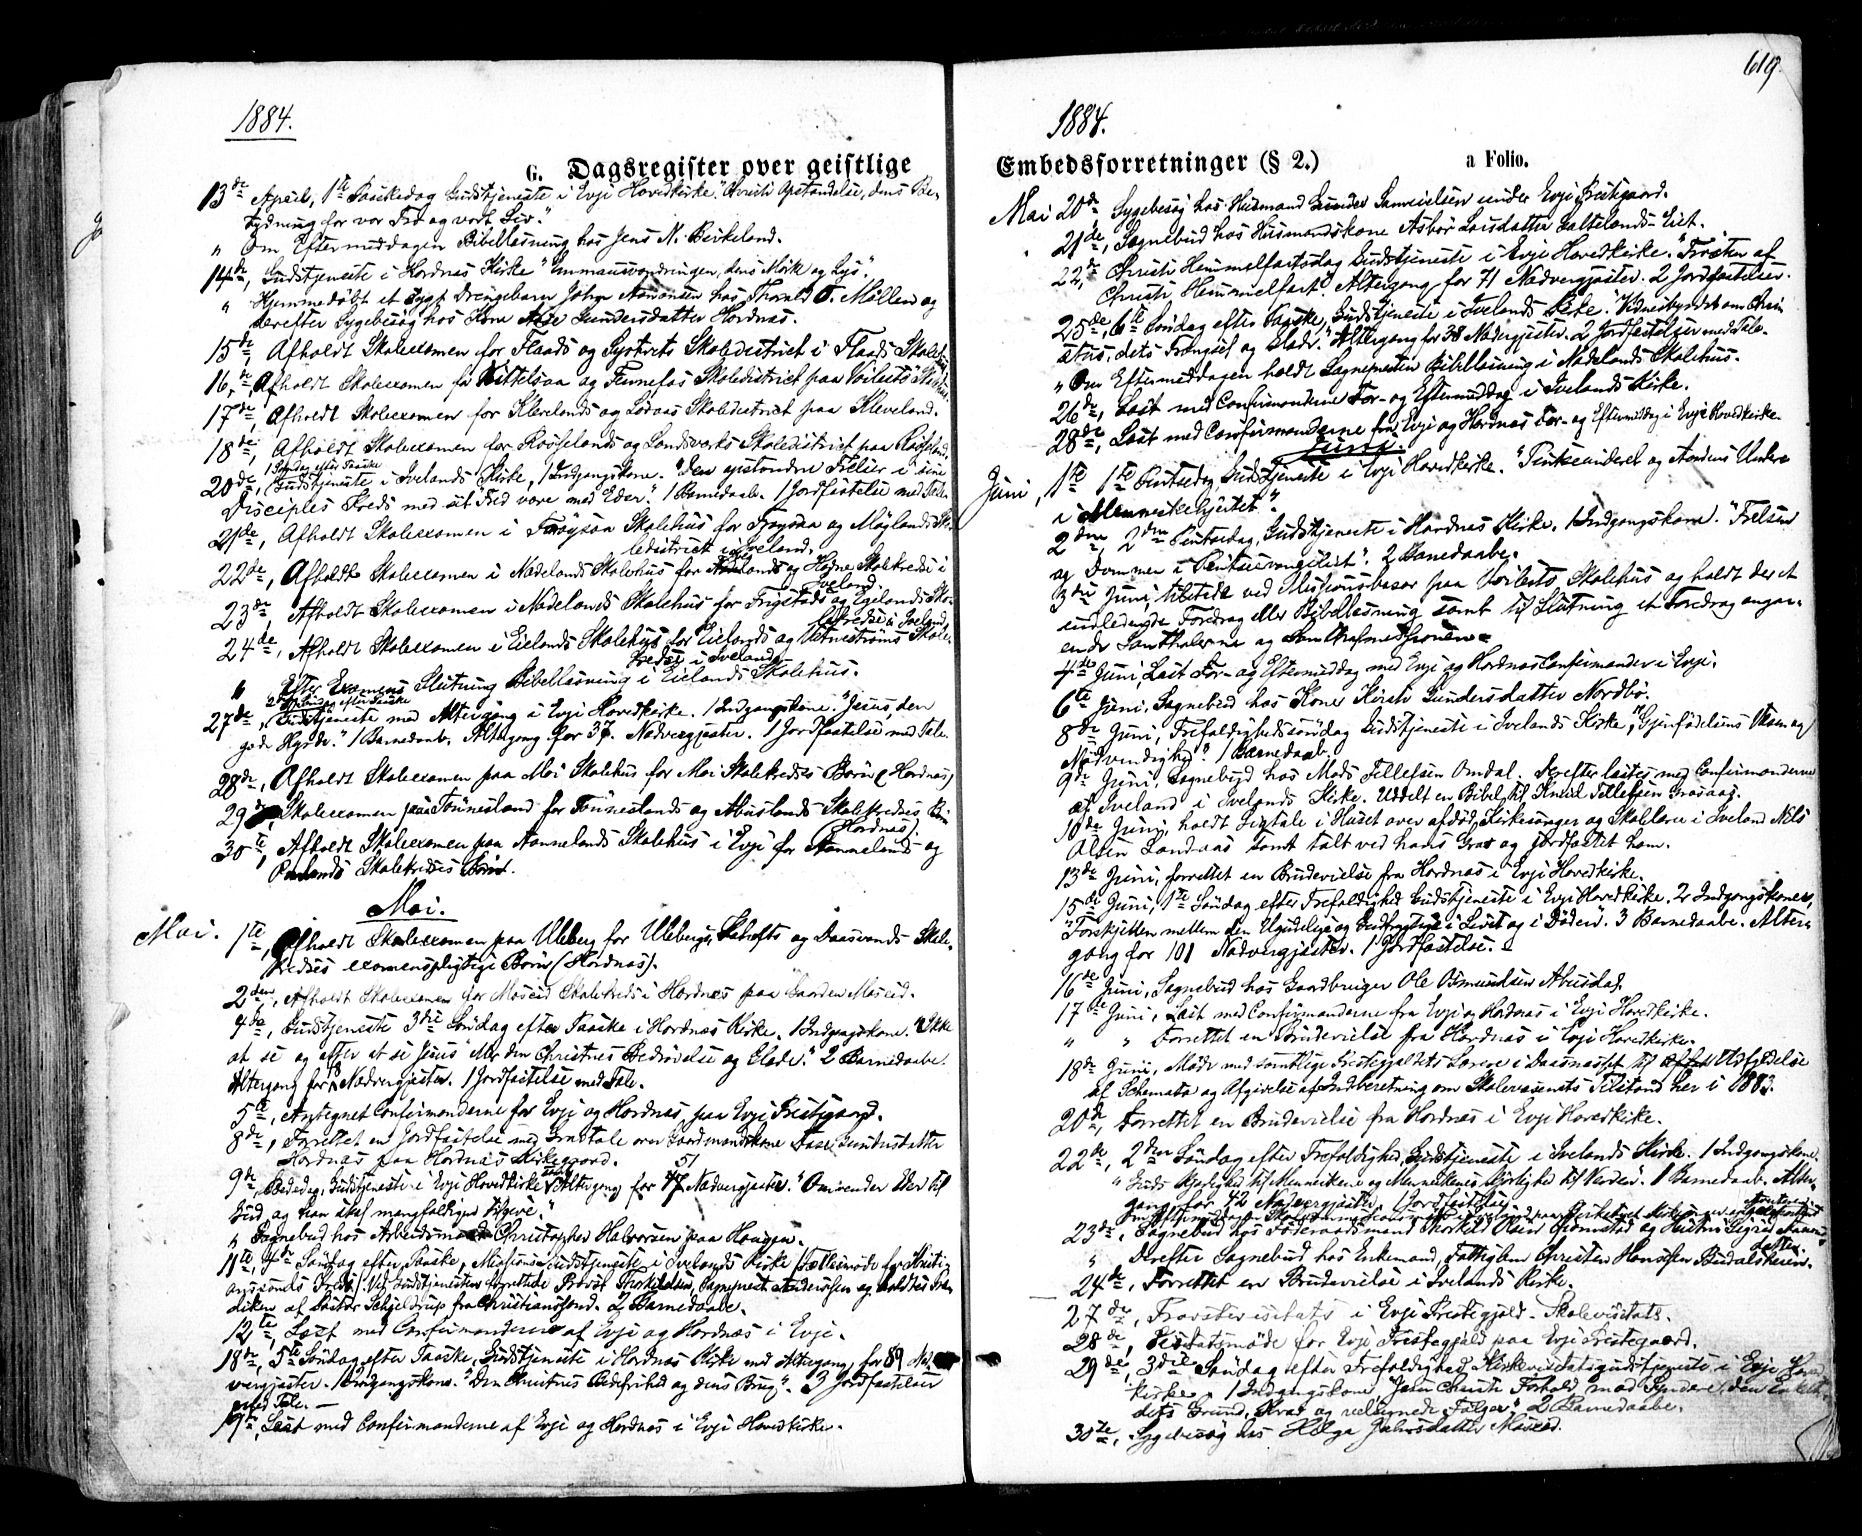 619.
1884.
G. Dagsregister over geistlige
13de April, 1ste Paaskedag Gudstjeneste i Evje Hovedkirke. "Christi Opstandelse, dens Be-
tydning for vor Tro og vort Liv."
" Om Eftermiddagen Bibellæsning hos Jens N. Birkeland.
14de, Gudstjeneste i Hordnæs Kirke "Emmausvandringen, dens Mørke og Lys".
" Hjemmedøbt et sygt Drengebarn Johan Aamonsen hos Thorald O. Møllen og
derefter Sygebesøg hos Kone Gundersdatter Hordnæs.
15de, Afholdt Skoleexamen for Flaads og Systveits Skoledistrict i Flaads Skolehus
16de, Afholdt Skoleexamen for Kittelsaa og Fennefos Skoledistrict paa Voileits Skolehus
17de, Afholdt Skoleexamen for Klevelands og Lødaas Skoledistrict paa Kleveland.
18de, Afholdt Skoleexamen for Rosselands og Landsverks Skoledistrict paa Rosseland
1 Søndag efter Paaske
20de, Gudstjeneste i Ivelands Kirke, 1 Indgangskone. "Den opstandne Frelser i sine
Disciples Kreds med sit "Fred være med Eder". 1 Barnedaab. 1 Jordfæstelse med Tale.
21de, Afholdt Skoleexamen i Frøysaa Skolehus for Frøysaa og Møglands Sko-
ledistrict i Iveland.
22de, Afholdt Skoleexamen i Nædelands Skolehus for og Hogne Skolekredse i
Iveland.
23de, Afholdt Skoleexamen i Nædelands Skolehus for Frigstads og Egelands Sko-
lekredse i Iveland
24de, Afholdt Skoleexamen i Eielands Skolehus for Eielands og Vatnestrøms Skole-
kredse i Iveland
" Efter Examens Slutning Bibellæsning i Eielands Skolehus.
2 Søndag efter Paaske
27de, Gudstjeneste med Altergang i Evje Hovedkirke. 1 Indgangskone. "Jesus, den
gode Hyrde." 1 Barnedaab. Altergang for 37 Nadvergjester. 1 Jordfæstelse med Tale.
28de, Afholdt Skoleexamen paa Moi Skolehus for Moi Skolekredses Børn (Hordnæs)
29de, Skoleexamen paa Tønnesland for Tønneslands og Abuslands Skolekredses Børn
(Hordnæs).
30te, Afholdt Skoleexamen paa Aamnelands Skolehus i Evje for Aamnelands og
Skolekredses Børn.
Mai.
Mai. 1ste, Afholdt Skoleexamen paa Uleberg for Ulebergs, og Daasvands Skole-
kredses examenspligtige Børn (Hordnæs).
2den, Afholdt Skoleexamen for Moseid Skolekreds i Hordnæs paa Gaarden Moseid.
4de, Gudstjeneste 3die Søndag efter Paaske i Hordnæs Kirke. 1 Indgangskone. "Ikke
at se og efter at se Jesus" eller den Christnes Bedrøvelse og Glæde." 2 Barnedaabe.
Altergang for Nadvergjester. 1 Jordfæstelse med Tale.
5te, Antegnet Confirmanderne for Evje og Hordnæs paa Evje Prestegaard.
8de, Forrettet en Jordfæstelse med Gravtale over Gaardmandskone Gundersdatter
Hordnæs paa Hordnæs Kirkegaard.
51
9de, Bededag, Gudstjeneste i Evje Hovedkirke Altergang for 47 Nadvergjester. "Omvender Eder til
Gud, og han skal mangfoldigen tilgive."
" Sognebud hos Arbeidsmand Christopher Halvorsen paa Haugen.
11te, 4de Søndag efter Paaske, Missions Gudstjeneste i Ivelands Kirke (Fællesmøde for Kristi-
anssands Kreds). Ved Gudstjenesten forrettede Provst Thorkildsen, Sognepræst Andersen og holdtes Præ-
diken af Pastor Schjelderup fra Christianssand. 2 Barnedaabe.
12te, Læst med Confirmanderne af Evje og Hordnæs i Evje.
18de, 5te Søndag efter Paaske, Gudstjeneste i Hordnæs Kirke med Altergang for 89 Nad-
vergjester. 1 Indgangskone. "Den Christnes Bedefrihed og dens Brug". 3 Jordfæstelser
med Tale. —
19de, Læst med Confirmanderne af Evje og Hordnæs i Evje Hovedkirke.
1884.
Embedsforretninger (§ 2.) a Folio.
Mai 20de, Sygebesøg hos Husmand Gunder Samuelsen under Evje Præstegaard.
21de, Sognebud hos Husmandskone Asbør Larsdatter Galtelands-Eiet.
22de, Christi Himmelfartsdag Gudstjeneste i Evje Hovedkirke. "Frugten af
Christi Himmelfart". Altergang for 71 Nadvergjester. 2 Jordfæstelser.
25de, 6te Søndag efter Paaske, Gudstjeneste i Ivelands Kirke. "Vidnesbyrdet om Chri-
stus, dets Trængsel og Glæde." Altergang for 38 Nadvergjester. 2 Jordfæstelser med Tale.
" Om Eftermiddagen holdt Sognepresten Bibellæsning i Nædelands Skolehus.
26de, Læst med Confirmanderne For- og Eftermiddag i Ivelands Kirke.
28de, Læst med Confirmanderne fra Evje og Hordnæs For- og Eftermiddag i Evje Hovedkirke.
Juni.
Juni, 1ste 1ste Pintsedag Gudstjeneste i Evje Hovedkirke. "Pintseunderet og Aandens Under
i Menneskehjertet".
2den, 2den Pintsedag, Gudstjeneste i Hordnæs Kirke. 1 Indgangskone. "Frelsen
og Dommen i Pintseevangeliet". 2 Barnedaabe.
3die Juni, tilstede ved Missionsbasar paa Voileits Skolehus og holdt der et
indledende Foredrag eller Bibellæsning samt til Slutning et Foredrag angaa-
ende Santhalerne og Santhalmissionen.
4de Juni, Læst For- og Eftermiddag med Evje og Hordnæs Confirmander i Evje.
6te Juni, Sognebud hos Kone Gundersdatter Nordbø.
8de Juni, Trefoldighedssøndag Gudstjeneste i Ivelands Kirke, "Gjenfødelsens Væsen og
Nødvendighed". 1 Barnedaab.
9de Juni, Sognebud hos Mads Tellefsen Omdal. Derefter læstes med Confirmanderne
af Iveland i Ivelands Kirke. Uddelt en Bibel til Tellefsen Graasaas.
10de Juni, holdt Ligtale i Huset over afdød Kirkesanger og Skolelærer i Iveland Nils
Olsen Landaas samt talt ved hans Grav og jordfæstet ham.
13de Juni, forrettet en Brudevielse fra Hordnæs i Evje Hovedkirke.
15de Juni, 1ste Søndag efter Trefoldighed Gudstjeneste i Evje Hovedkirke. 2 Indgangskoner.
"Forskjellen mellem den Ugudelige og Gudfrygtige i Livet og i Døden". 3 Barnedaabe. Alter-
gang for 101 Nadvergjester. 1 Jordfæstelse.
16de Juni, Sognebud hos Gaardbruger Ole Osmundsen Abusdal.
17de Juni, Læst med Confirmanderne fra Evje og Hordnæs i Evje Hovedkirke.
" " Forrettet en Brudevielse fra Hordnæs i Evje Hovedkirke.
18de Juni, Møde med samtlige Prestegjeldets Lærere i Daasnæsset til Udfyldelse
af Schemata og Afgivelse af Indberetning om Skolevæsenets Tilstand her i 1883.
20de, Forrettet en Brudevielse fra Hordnæs i Evje Hovedkirke.
22de, 2den Søndag efter Trefoldighed, Gudstjeneste i Ivelands Kirke. 1 Indgangskone.
"Guds Kjærlighed til Menneskene og Menneskenes Kjærlighed til Verden". 1 Barnedaab. Alter-
gang for 42 Nadvergjester. 1 Jordfæstelse.
23de, Sognebud hos Føderaadsmand Thorkel Olsen og Hustru Sigrid
datter.
" Derefter Sognebud hos Enkemand, Fattiglem Christen Hansen
24de, Forrettet en Brudevielse i Ivelands Kirke.
27de, Provstevisitats i Evje Prestegjeld. Skolevisitats.
28de, Visitatsmøde for Evje Prestegjeld paa Evje Prestegaard.
29de, 3die Søndag efter Trefoldighed Kirkevisitatsgudstjeneste i Evje Hoved-
kirke. 1 Indgangskone. "Jesu Christi Forhold mod Syndere, den Enkelte,
dets Grund, Krav og velsignede Følger". 2 Barnedaabe.
30te, Sygebesøg hos Helga Moseid.